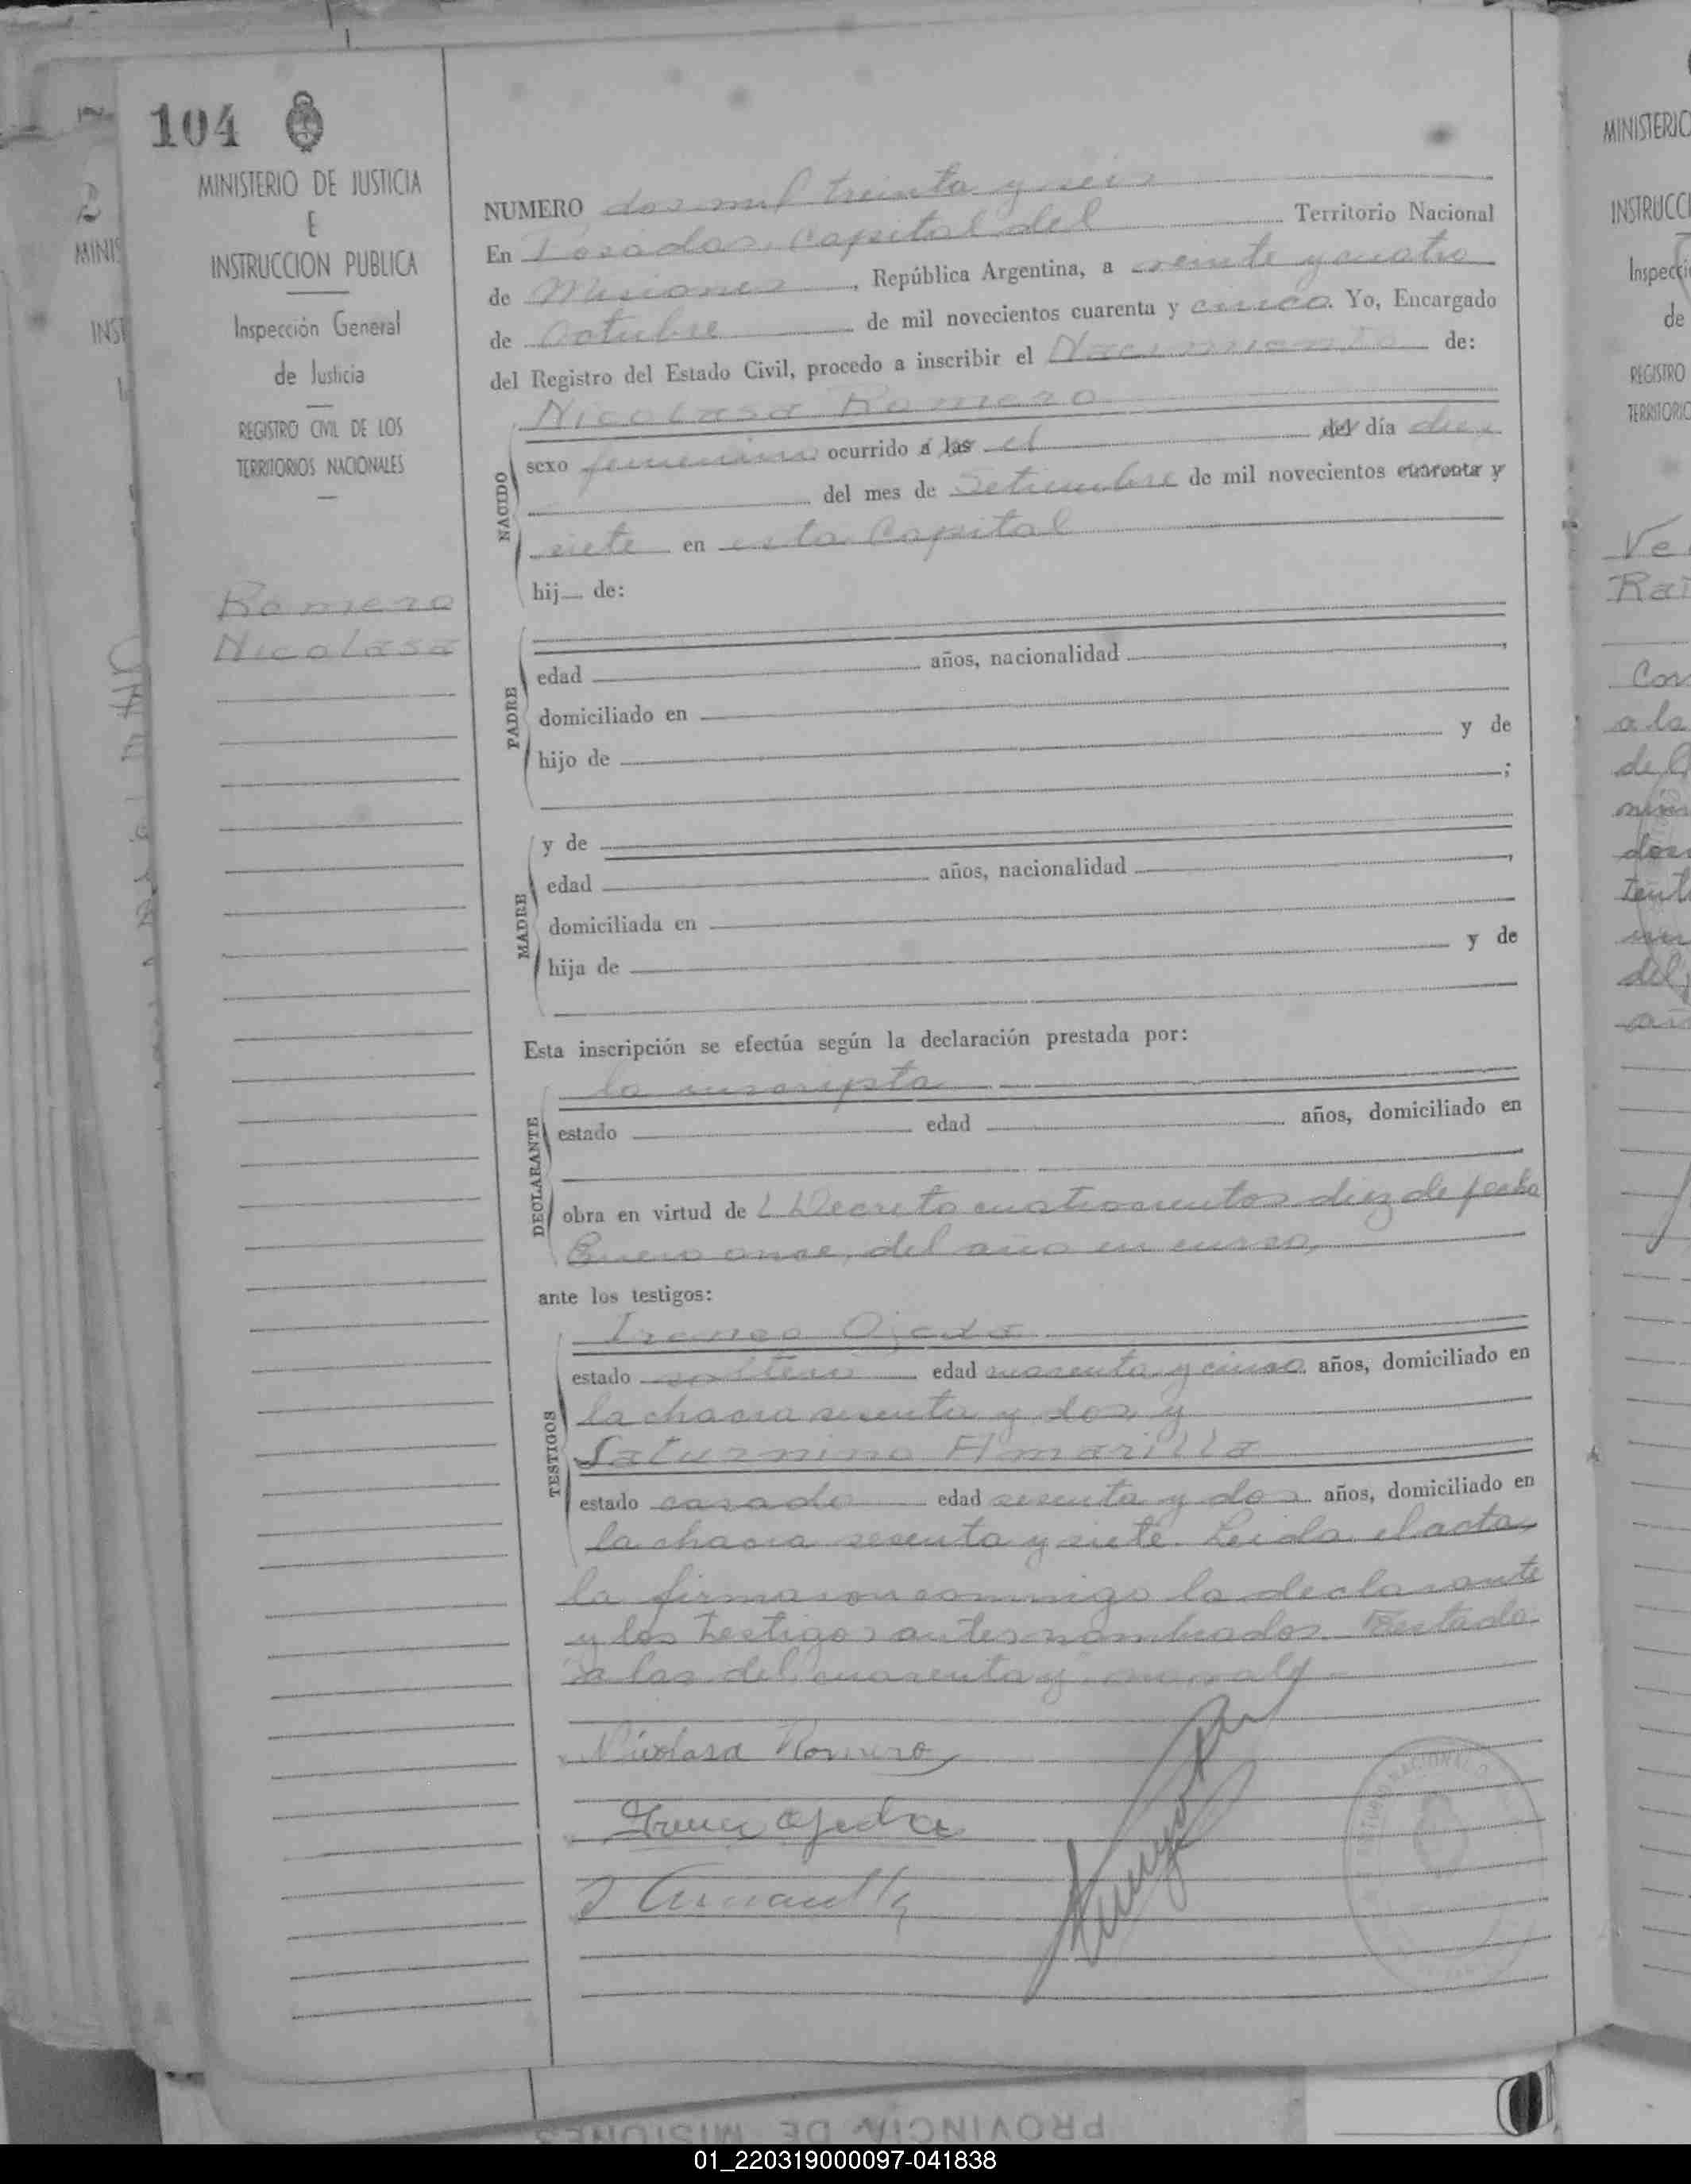 104
MINISTERIO DE JUSTICIA
E
INSTRUCCION PUBLICA
Inspección General
de Justicia
REGISTRO CIVIL DE LOS
TERRITORIOS NACIONALES
Romero
Nicolasa
NUMERO dos mil treinta y seis
En Posadas, Capital del Territorio Nacional
de Misiones, República Argentina, a veinte y cuatro
de Octubre de mil novecientos cuarenta y cinco. Yo, Encargado
del Registro del Estado Civil, procedo a inscribir el Nacimiento de:
NACIDO
Nicolasa Romero
sexo femenino ocurrido a las el del día diez
del mes de Setiembre de mil novecientos cuarenta y
siete en esta Capital
hij de:
PADRE
edad años, nacionalidad
domiciliado en
hijo de y de
;
MADRE
y de
edad años, nacionalidad
domiciliada en
hija de y de
Esta inscripción se efectúa según la declaración prestada por:
DECLARANTE
la inscripta
estado edad años, domiciliado en
obra en virtud de l Decreto cuatrocientos diez de fecha
Enero once, del año en curso,
ante los testigos:
TESTIGOS
Ireneo Ojeda
estado soltero edad cuarenta y cinco años, domiciliado en
la chacra sesenta y dos y
Saturnino Amarilla
estado casado edad sesenta y dos años, domiciliado en
la chacra sesenta y siete. Leída el acta,
la firmaron conmigo la declarante
y los testigos antes nombrados. Testado
"a las del cuarenta y"
Nicolasa Romero
Ireneo Ojeda
S Amarilla
MINISTERIO
INSTRUCCI
Inspecci
de
REGISTRO
TERRITORIO
PROVINCIA DE MISIONES
01_220319000097-041838